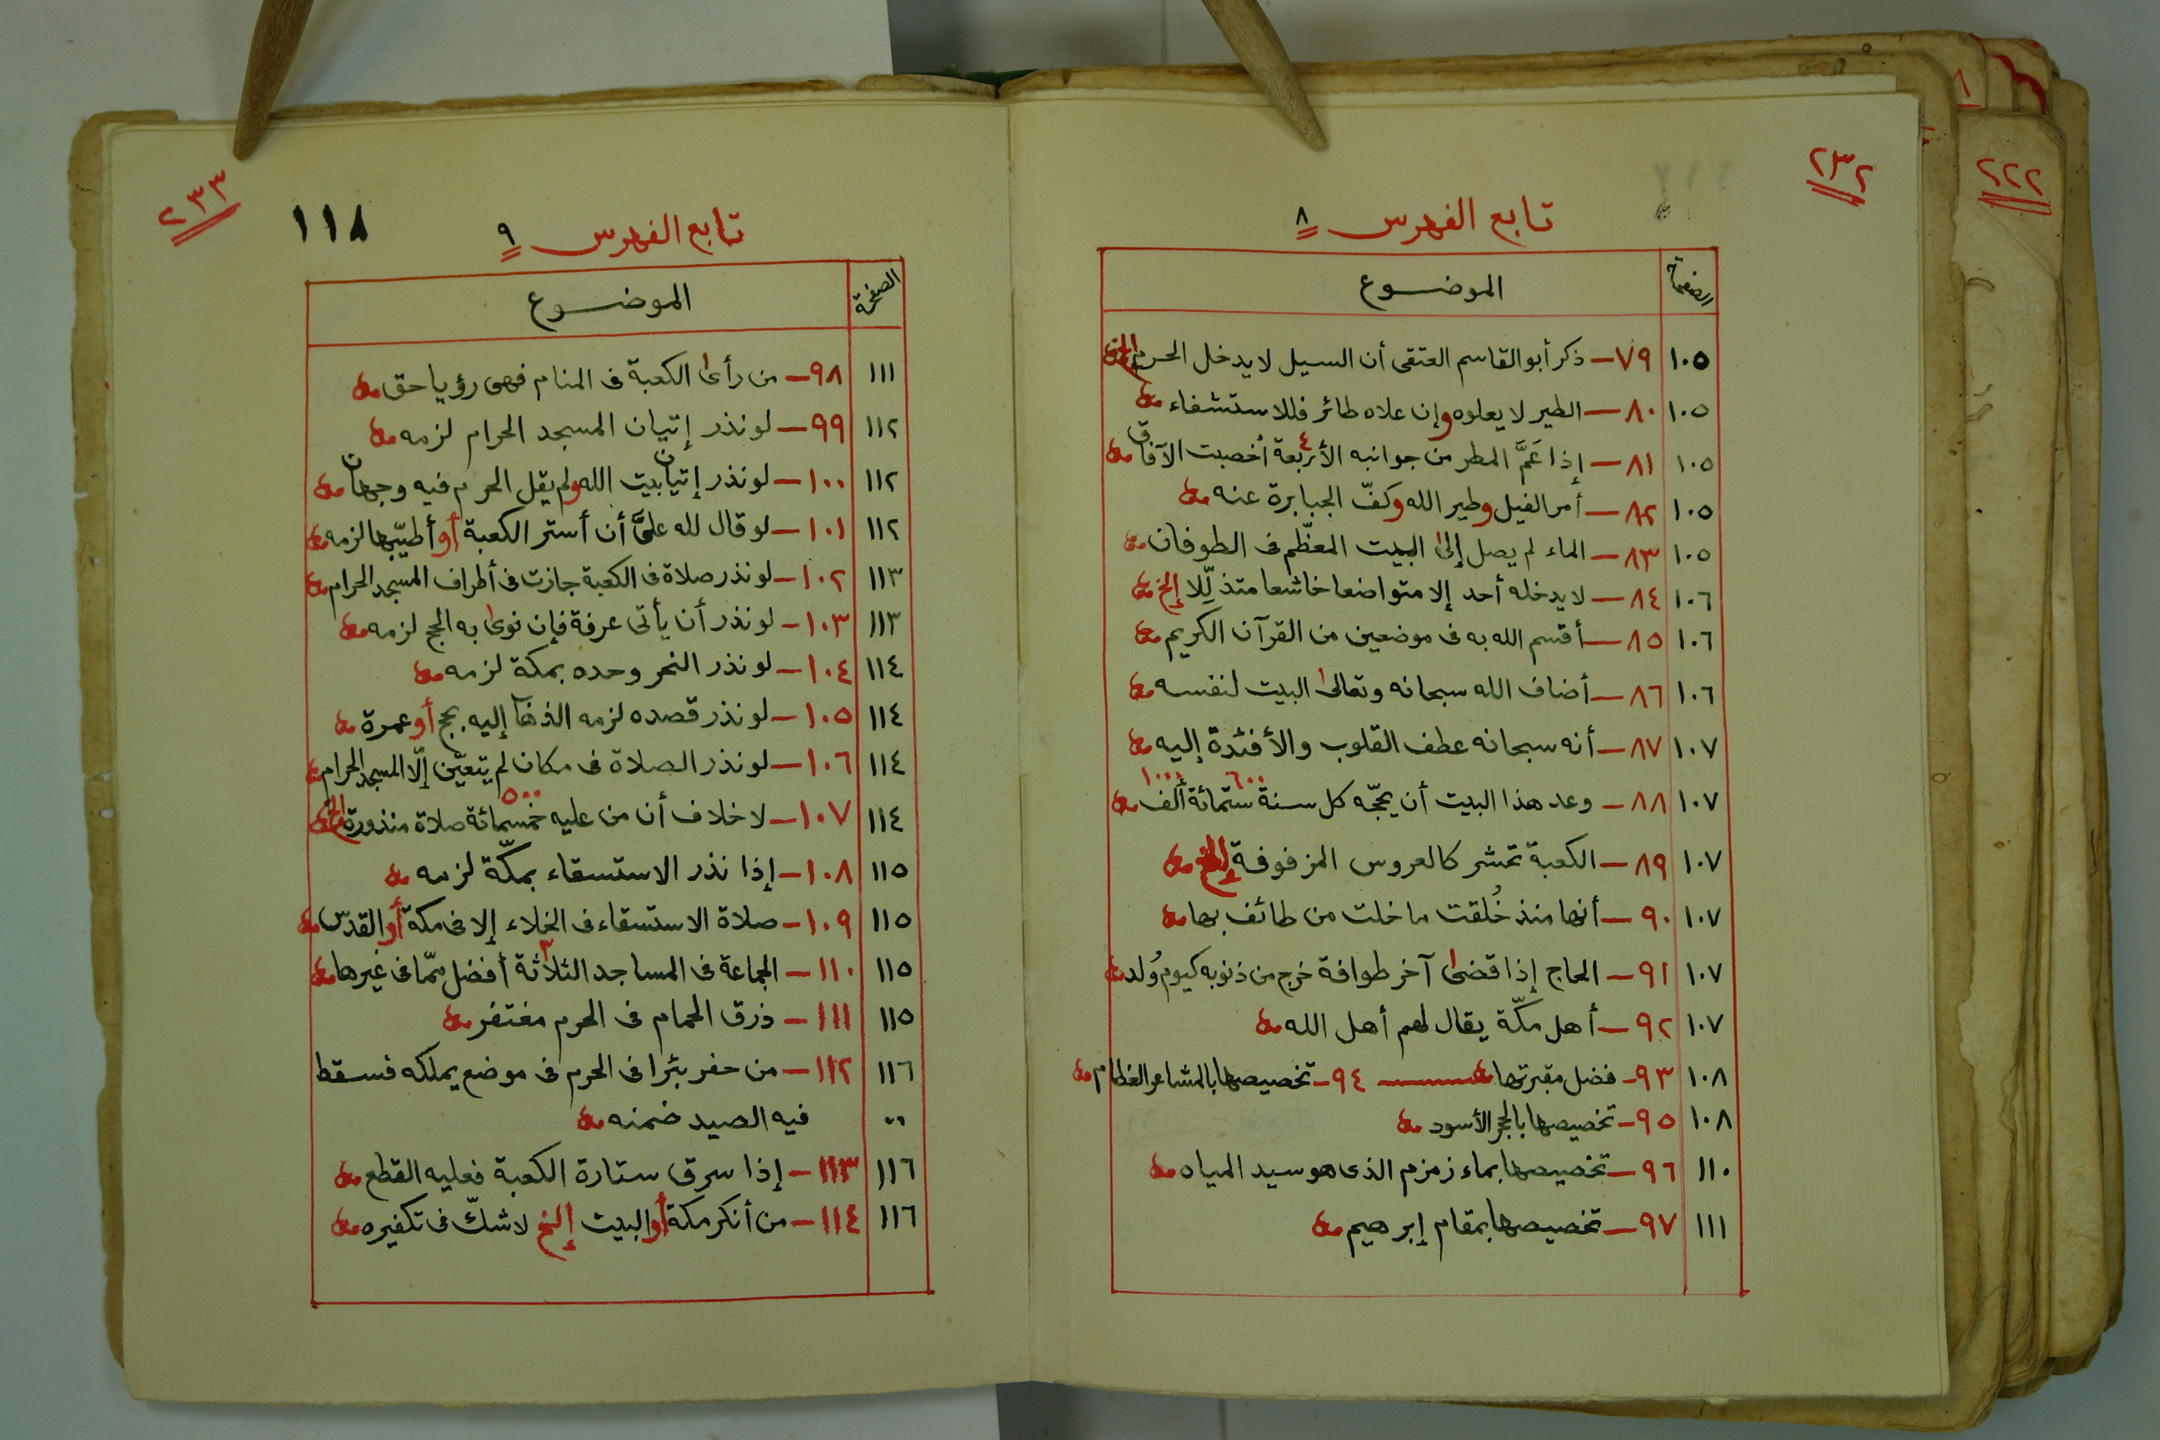 ٢٣٢
٢٢٢
تابع الفهرس ٨
الصفحة الموضوع
١٠٥ ٧٩- ذكر أبو القاسم العتقى أن السيل لا يدخل الحرم إلخ
١٠٥ ٨٠- الطير لا يعلوه وإن علاه طائر فللاستشفاء
١٠٥ ٨١- إذا عَمَّ المطر من جوانبه الأربعة ٤ أخصبت الآفاق
١٠٥ ٨٢- أمر الفيل وطير الله وكفّ الجبابرة عنه
١٠٥ ٨٣- الماء لم يصل إلى البيت المعظّم فى الطوفان
١٠٦ ٨٤- لا يدخله أحد إلا متواضعا خاشعا متذلّلا إلخ
١٠٦ ٨٥- أقسم الله به فى موضعين من القرآن الكريم
١٠٦ ٨٦- أضاف الله سبحانه وتعالى البيت لنفسه
١٠٧ ٨٧- أنه سبحانه عطف القلوب والأفئدة إليه
١٠٧ ٨٨- وعد هذا البيت أن يحجّه كل سنة ستمائة ٦٠٠ ألف ١٠٠٠
١٠٧ ٨٩- الكعبة تحشر كالعروس المزفوفة إلخ
١٠٧ ٩٠- أنها منذ خُلقت ما خلت من طائف بها
١٠٧ ٩١- الحاج إذا قضى آخر طوافة خرج من ذنوبه كيوم وُلد
١٠٧ ٩٢- أهل مكّة يقال لهم أهل الله
١٠٨ ٩٣- فضل مقبرتها ٩٤- تخصيصها بالمشاعر العظام
١٠٨ ٩٥- تخصيصها بالحجر الأسود
١١٠ ٩٦- تخصيصها بماء زمزم الذى هو سيد المياه
١١١ ٩٧- تخصيصها بمقام إبرهيم
٢٣٣
١١٨
تابع الفهرس ٩
الصفحة الموضوع
١١١ ٩٨- من رأى الكعبة فى المنام فهى رؤيا حق
١١٢ ٩٩- لو نذر إتيان المسجد الحرام لزمه
١١٢ ١٠٠- لو نذر إتيان بيت الله ولم يقل الحرام فيه وجهان
١١٢ ١٠١- لو قال لله علىَّ أن أستر الكعبة أو أطيّبها لزمه
١١٣ ١٠٢- لو نذر صلاة فى الكعبة جازت فى أطراف المسجد الحرام
١١٣ ١٠٣- لو نذر أن يأتى عرفة فإن نوى به الحج لزمه
١١٤ ١٠٤- لو نذر النحر وحده بمكة لزمه
١١٤ ١٠٥- لو نذر قصده لزمه الذهاب إليه بحج أو عمرة
١١٤ ١٠٦- لو نذر الصلاة فى مكان لم يتعيّن إلّا المسجد الحرام
١١٤ ١٠٧- لا خلاف أن من عليه خمسمائة ٥٠٠ صلاة منذورة إلخ
١١٥ ١٠٨- إذا نذر الاستسقاء بمكّة لزمه
١١٥ ١٠٩- صلاة الاستسقاء فى الخلاء إلا فى مكة أو القدس
١١٥ ١١٠- الجماعة فى المساجد الثلاثة ٣ أفضل ممّا فى غيرها
١١٥ ١١١- ذرق الحمام فى الحرم مغتفر
١١٦ ١١٢- من حفر بئرا فى الحرم فى موضع يملكه فسقط
فيه الصيد ضمنه
١١٦ ١١٣- إذا سرق ستارة الكعبة فعليه القطع
١١٦ ١١٤- من أنكر مكة أو البيت إلخ لا شكّ فى تكفيره